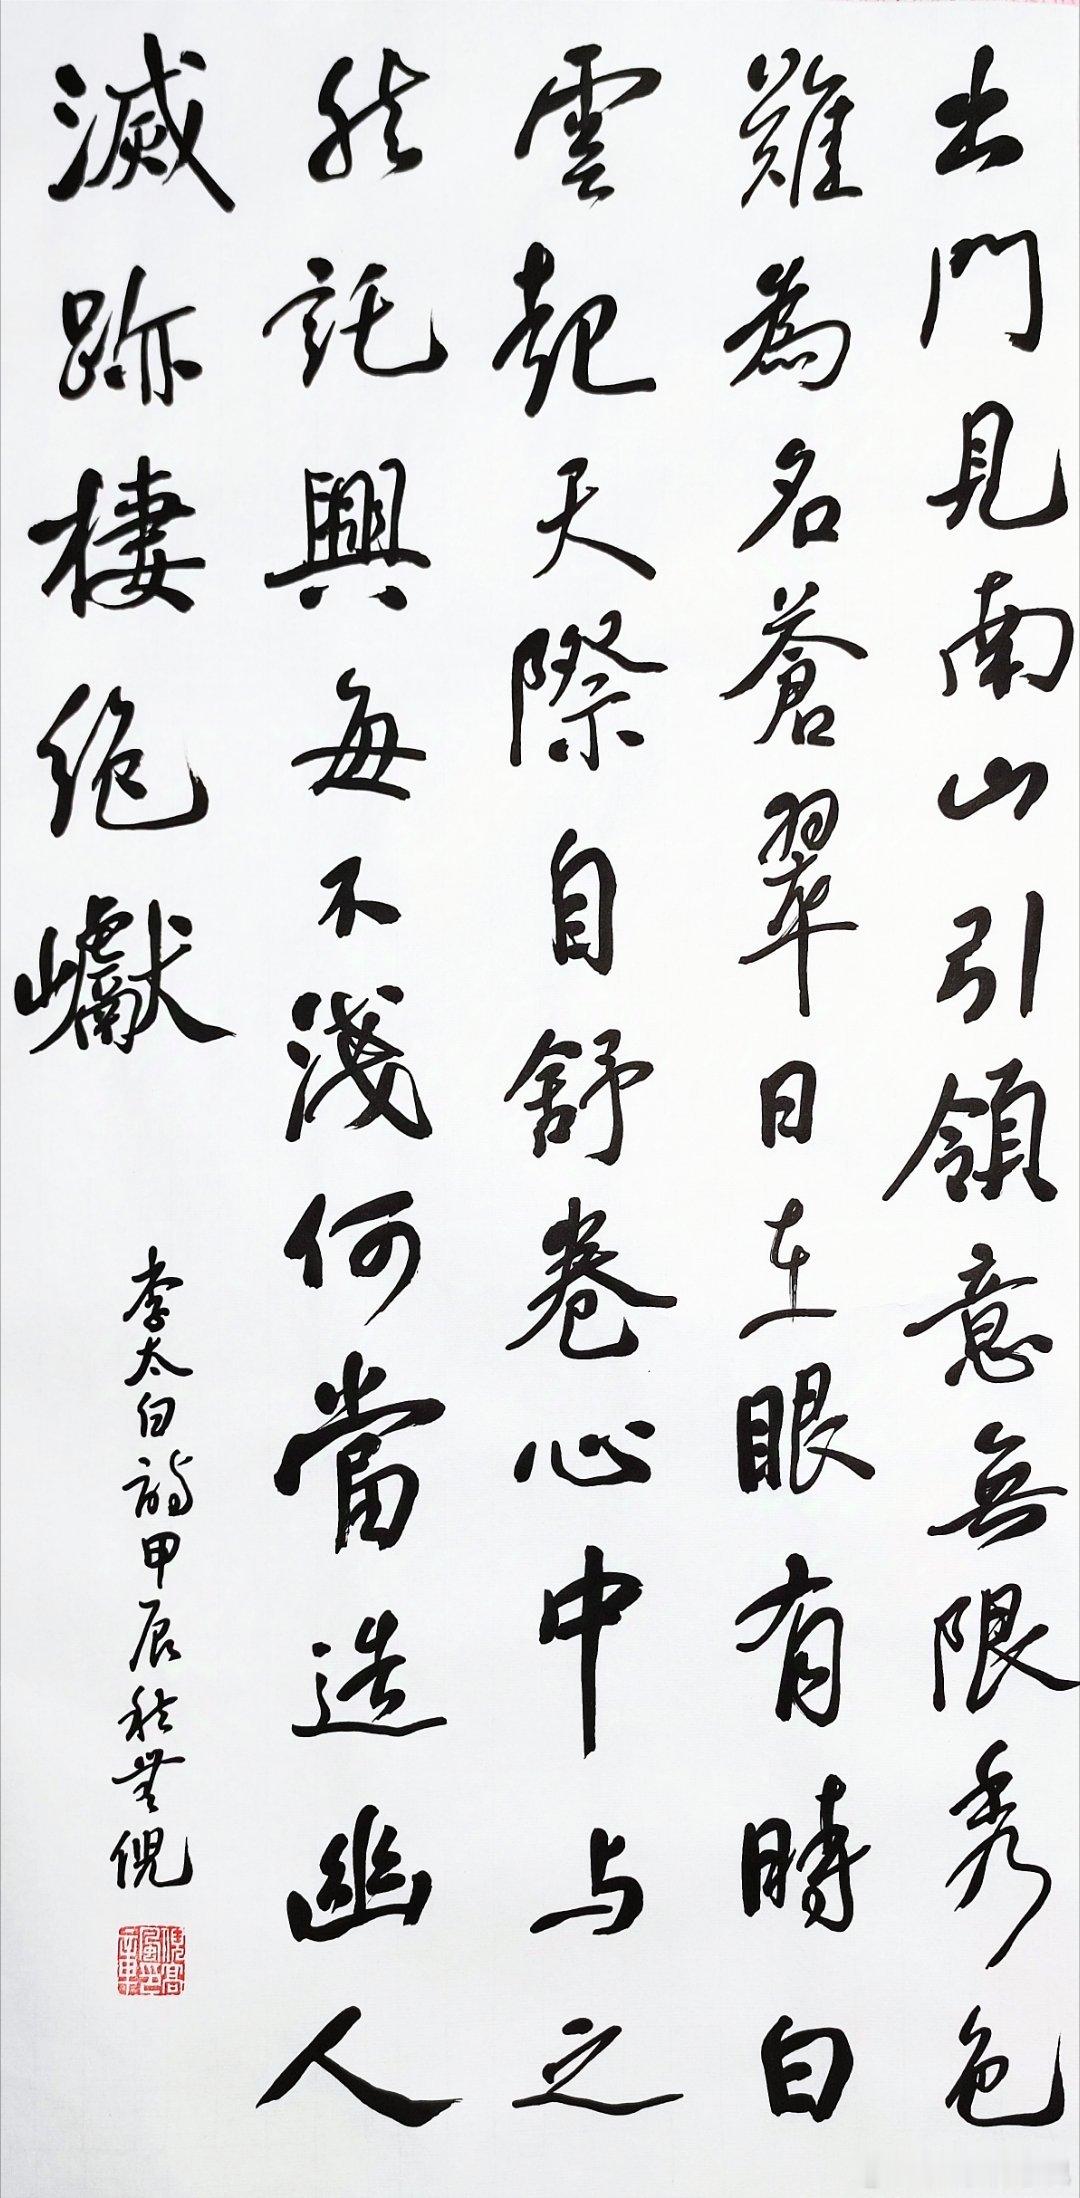 出門見南山引領意無限秀色
難為名蒼翠日在眼有時白
雲起天際自舒卷心中与之
然託興每不淺何當造幽人
滅跡棲絕巘
李太白詩甲辰秋倪